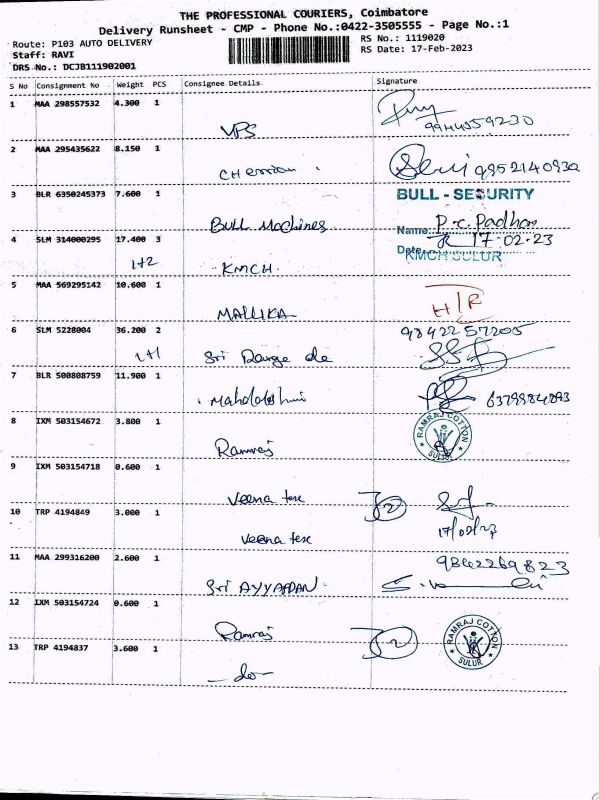 THE PROFESSIONAL COURIERS, Coimbatore
Delivery Runsheet - CMP - Phone No.:0422-3505555 - Page No.:1
Route: P103 AUTO DELIVERY
RS No.: 1119020
Staff: RAVI
RS Date: 17-Feb-2023
DRS No.: DCJB111902001
S No Consignment No Weight PCS Consignee Details Signature
1 MAA 298557532 4.300 1
VPS
2 MAA 295435622 8.150 1
9952140930
3 BLR 6350245373 7.600 1
BULL - SECURITY
Bull Machines
Name P.C. Padhan
4 SLM 314000295 17.400 3
Date 17-02-23
1+2 KMCH.
KMCH SULUR
5 MAA 569295142 10.600 1
MALLIKA
H/R
6 SLM 5228004 36.200 2
9842257205
1+1 Sri Durga
7 BLR 500808759 11.900 1
8 IXM 503154672 3.800 1
RAMRAJ COTTON
SULUR
Ramraj
9 IXM 503154718 0.600 1
Veena tex
10 TRP 4194849 3.000 1
17/02/23
Veena tex
11 MAA 299316200 2.600 1
9842269823
Sri AYYAPPAN
12 IXM 503154724 0.600 1
Ramraj
RAMRAJ COTTON
SULUR
13 TRP 4194837 3.600 1
-do-